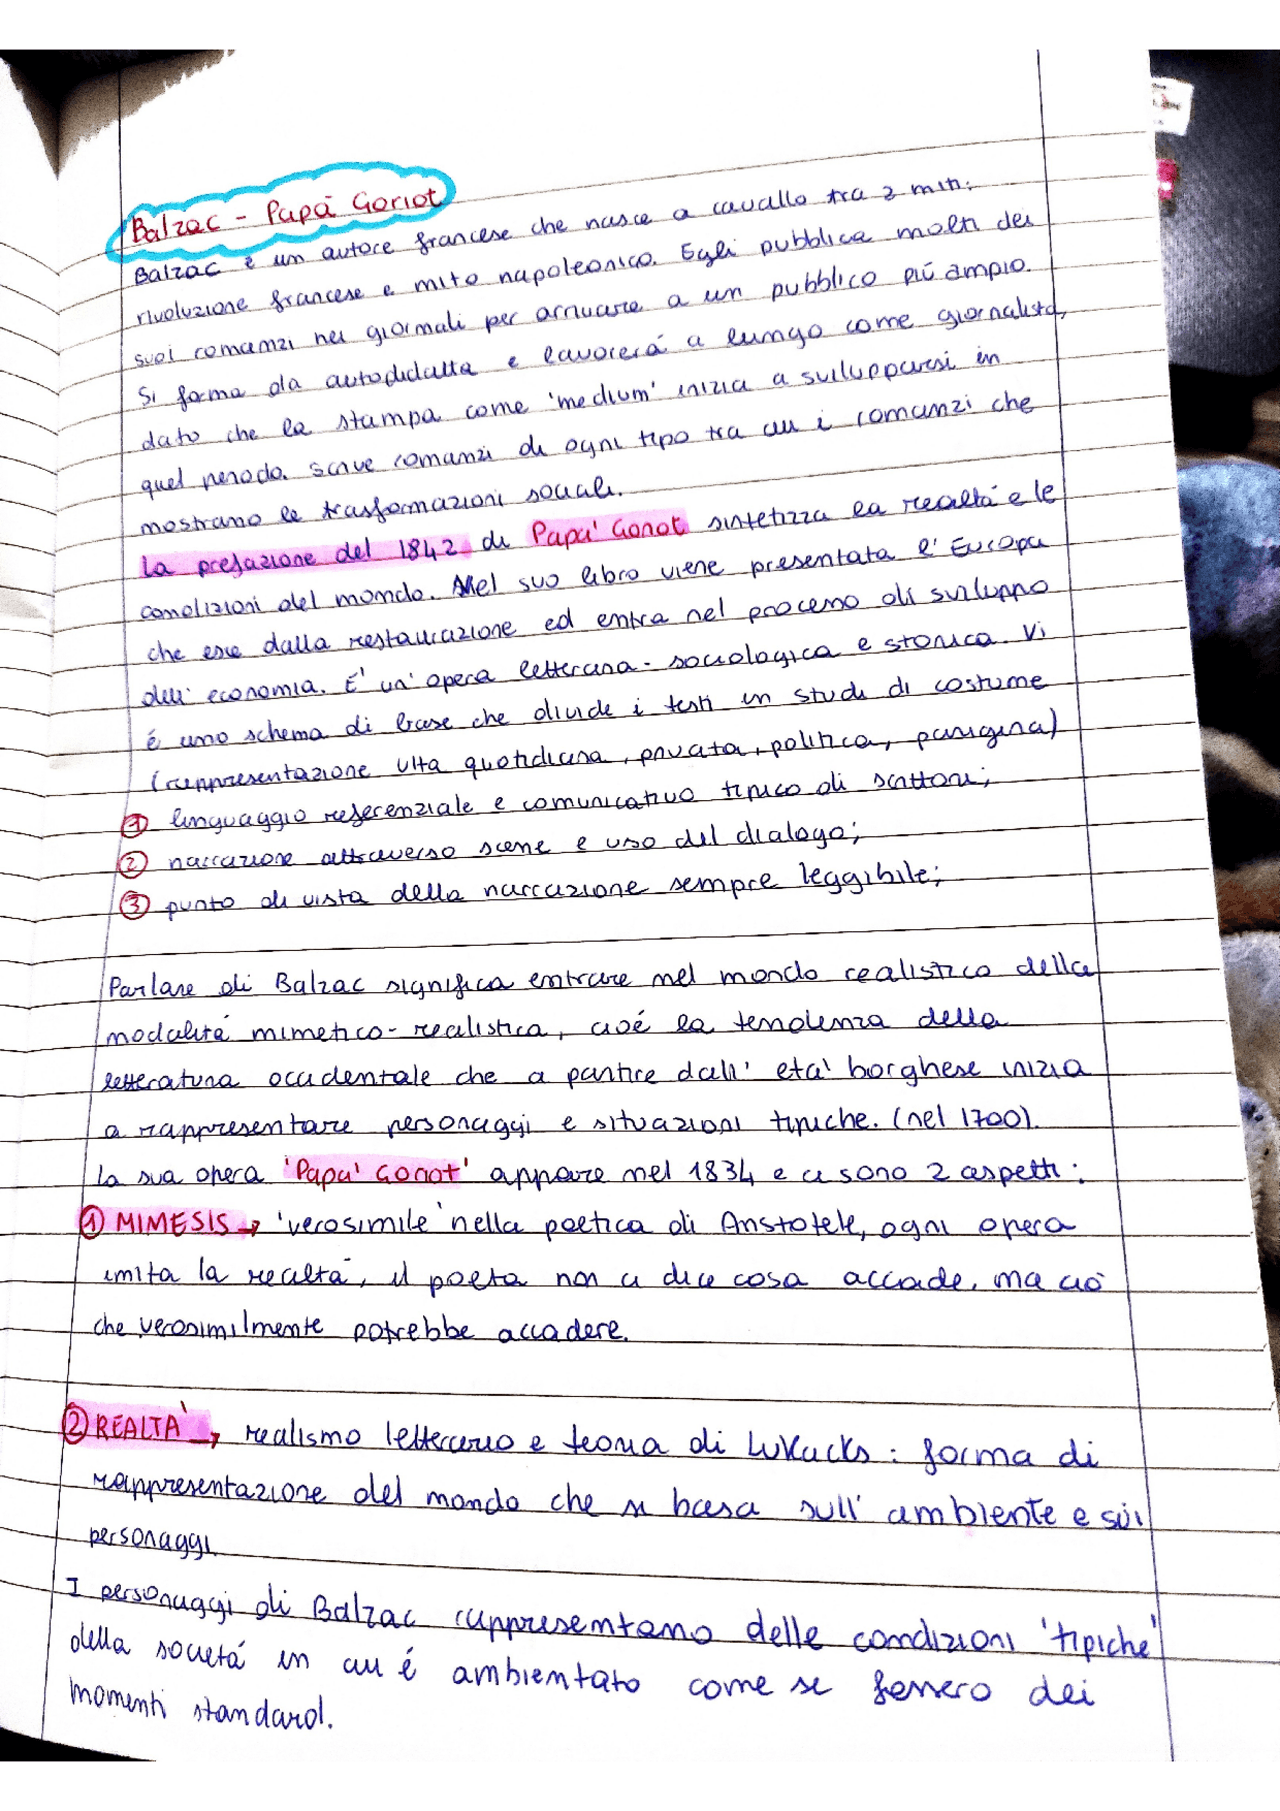 Balzac - Papà Goriot
Balzac è un autore francese che nasce a cavallo tra 2 miti:
rivoluzione francese e mito napoleonico. Egli pubblica molti dei
suoi romanzi nei giornali per arrivare a un pubblico più ampio.
Si forma da autodidatta e lavorerá a lungo come giornalista,
dato che la stampa come 'medium' inizia a svilupparsi in
quel periodo. Scrive romanzi di ogni tipo tra cui i romanzi che
mostrano le trasformazioni sociali.
La prefazione del 1842 di Papa' Goriot sintetizza la realtá e le
condizioni del mondo. Nel suo libro viene presentata l'Europa
che esce dalla restaurazione ed entra nel processo di sviluppo
dell'economia. E' un'opera letteraria- sociologica e storica. Vi
é uno schema di base che divide i testi in studi di costume
(rappresentazione vita quotidiana, privata, politica, parigina)
① linguaggio referenziale e comunicativo tipico di scrittori;
② narrazione attraverso scene e uso del dialogo;
③ punto di vista della narrazione sempre leggibile;
Parlare di Balzac significa entrare nel mondo realistico della
modalitá mimetico-realistica, cioé la tendenza della
letteratura occidentale che a partire dall'eta' borghese inizia
a rappresentare personaggi e situazioni tipiche. (nel 1700).
La sua opera 'Papa' Goriot' appare nel 1834 e ci sono 2 aspetti:
① MIMESIS → 'verosimile' nella poetica di Aristotele, ogni opera
imita la realtá, il poeta non ci dice cosa accade, ma ciò
che verosimilmente potrebbe accadere.
② REALTA' → realismo letterario e teoria di Lukacks: forma di
rappresentazione del mondo che si basa sull'ambiente e sui
personaggi.
I personaggi di Balzac rappresentano delle condizioni 'tipiche'
della societá in cui é ambientato come se fossero dei
momenti standard.